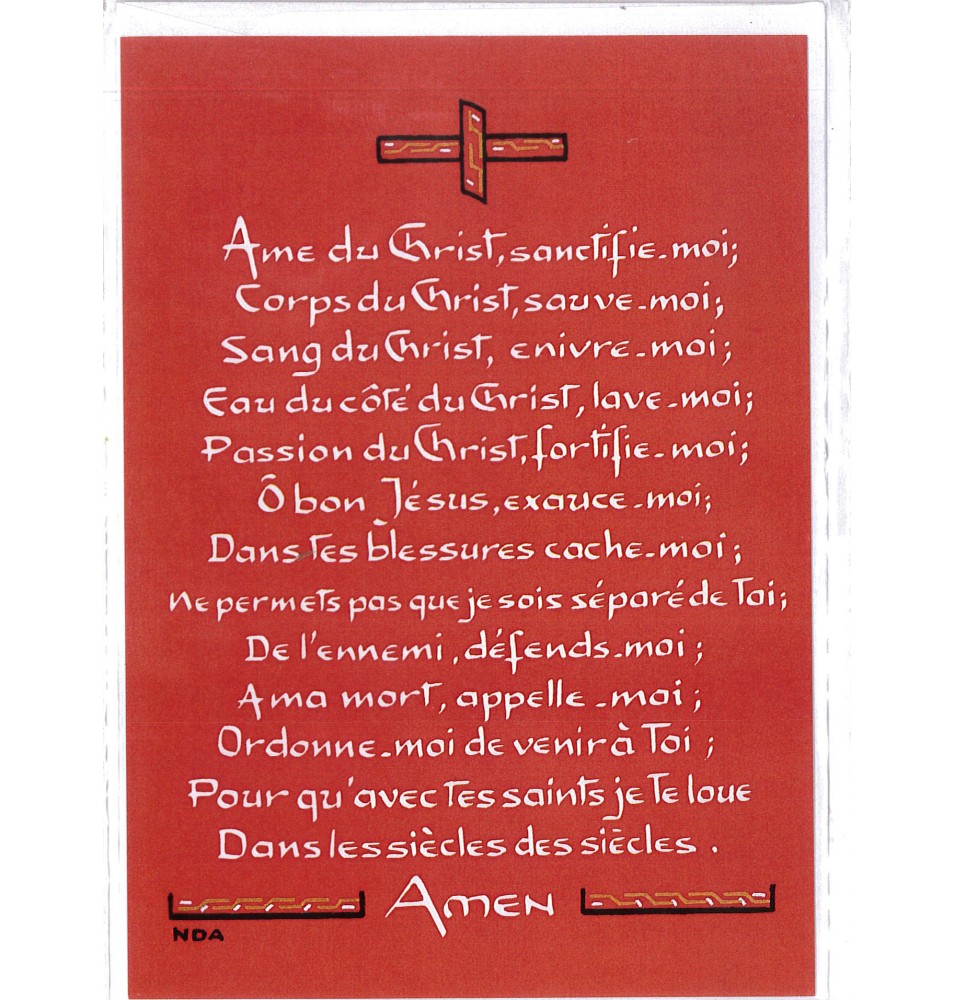 Ame du Christ, sanctifie-moi;
Corps du Christ, sauve-moi;
Sang du Christ, enivre-moi;
Eau du côté du Christ, lave-moi;
Passion du Christ, fortifie-moi;
Ô bon Jésus, exauce-moi;
Dans tes blessures cache-moi;
Ne permets pas que je sois séparé de Toi;
De l'ennemi, défends-moi;
A ma mort, appelle-moi;
Ordonne-moi de venir à Toi;
Pour qu'avec tes saints je Te loue
Dans les siècles des siècles.
AMEN
NDA